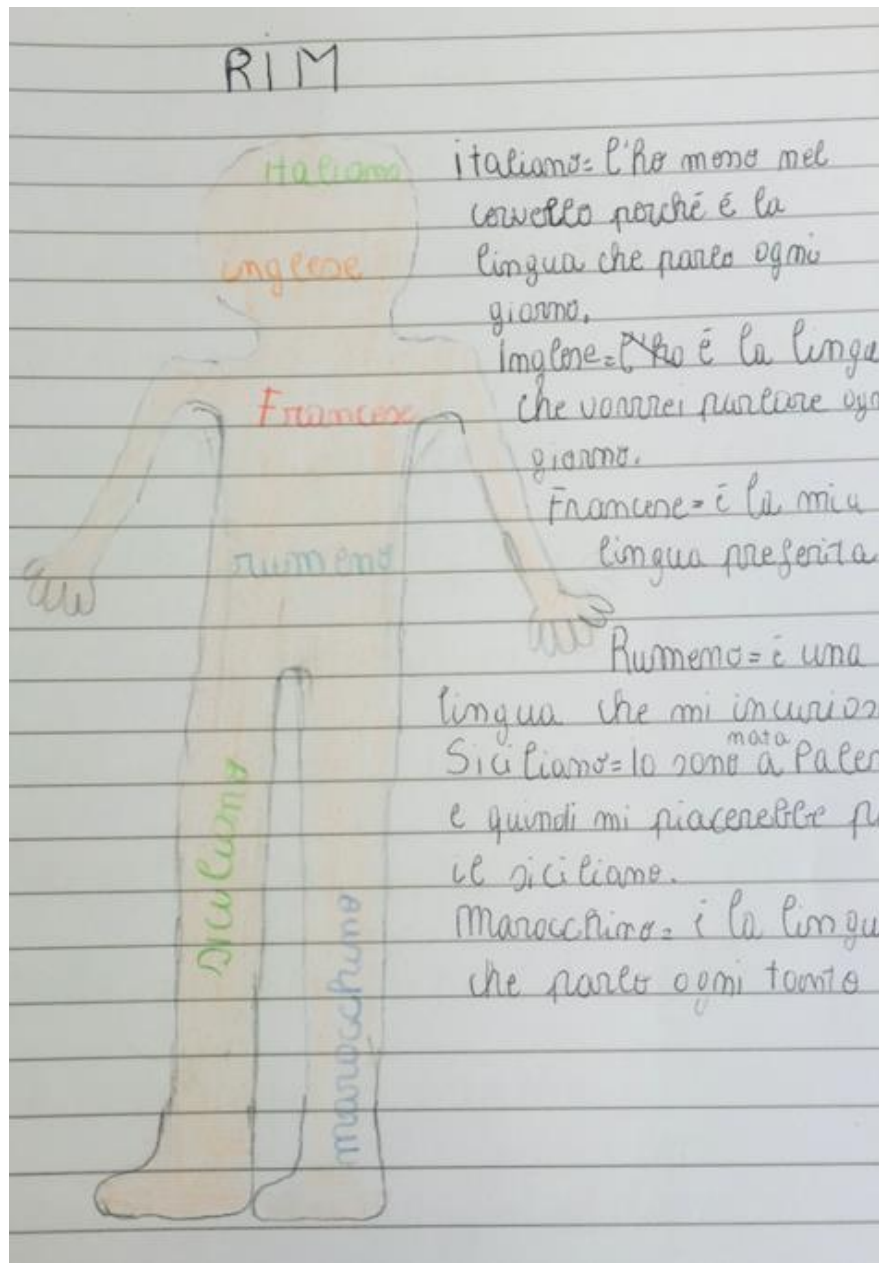 RIM
italiano
inglese
Francese
rumeno
siciliano
marocchino
italiano= l'ho messo nel
cervello perché é la
lingua che parlo ogni
giorno.
Inglese= é la lingua
che vorrei parlare
giorno.
Francese= é la mia
lingua preferita
Rumeno= é una
lingua che mi
nata
Siciliano= Io sono a
e quindi mi piacerebbe
il siciliano.
Marocchino= é la
che parlo ogni tanto